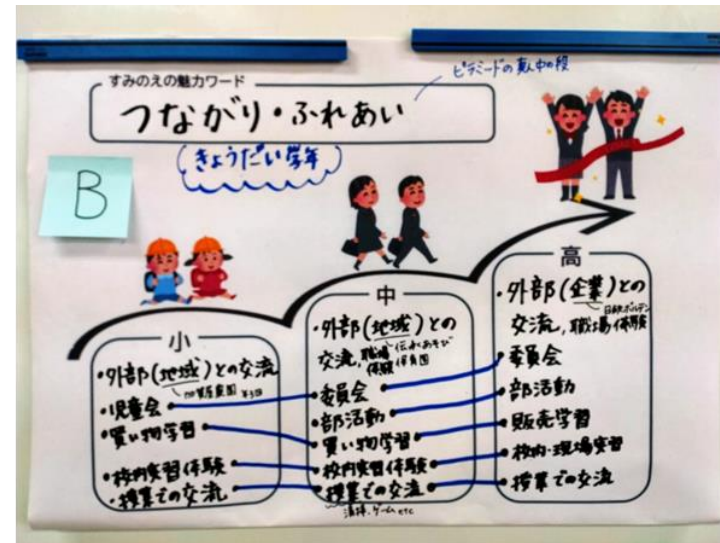 すみのえの魅力ワード
つながり・ふれあい
ピラミードの真ん中の段
きょうだい学年
B
小
・外部(地域)との交流
・児童会
・買い物学習
・校内実習体験
・授業での交流
中
・外部(地域)との
交流,職場体験
伝承あそび
保育園
委員会
・部活動
買い物学習
校内実習体験
授業での交流
清掃、ゲーム etc
高
・外部(企業)との
交流,職場体験
委員会
部活動
販売学習
校内・現場実習
授業での交流